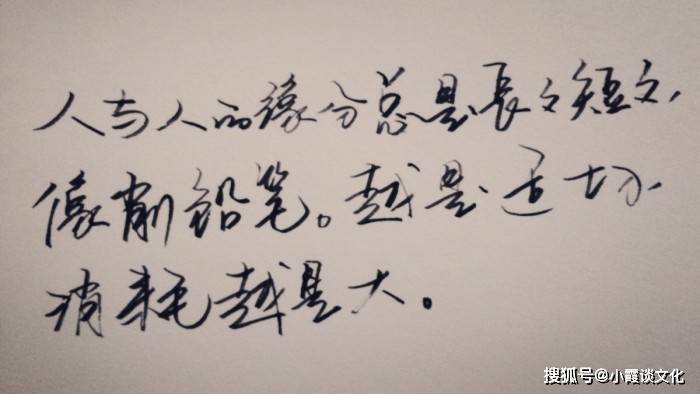 人与人的缘分总是長长短短,
像削铅笔。越是迫切,
消耗越是大。
搜狐号@小霞谈文化